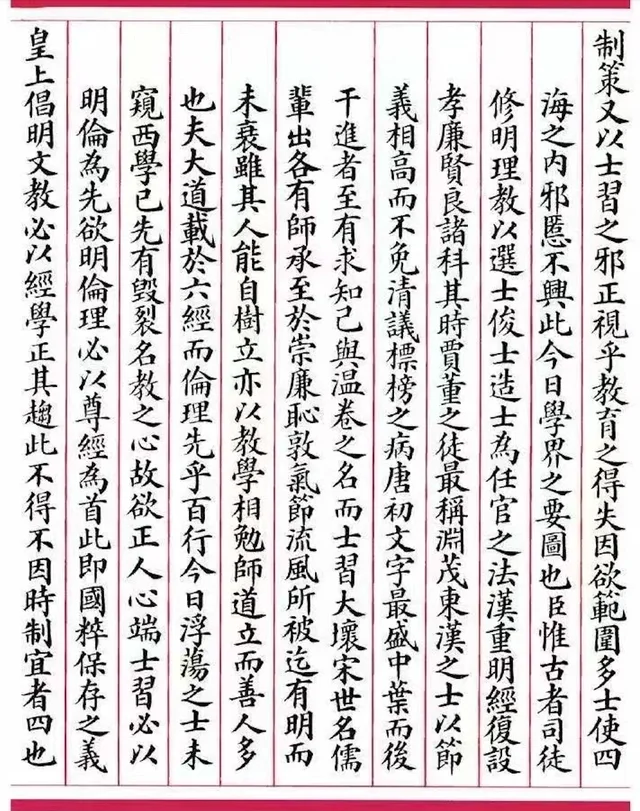 制策又以士習之邪正視乎教育之得失因欲範圍多士使四
海之內邪慝不興此今日學界之要圖也臣惟古者司徒
修明理教以選士俊士造士為任官之法漢重明經復設
孝廉賢良諸科其時賈董之徒最稱淵茂東漢之士以節
義相高而不免清議標榜之病唐初文字最盛中葉而後
干進者至有求知己與温卷之名而士習大壞宋世名儒
輩出各有師承至於崇廉恥敦氣節流風所被迄有明而
未衰雖其人能自樹立亦以教學相勉師道立而善人多
也夫大道載於六經而倫理先乎百行今日浮蕩之士未
窺西學已先有毀裂名教之心故欲正人心端士習必以
明倫為先欲明倫理必以尊經為首此即國粹保存之義
皇上倡明文教必以經學正其趨此不得不因時制宜者四也